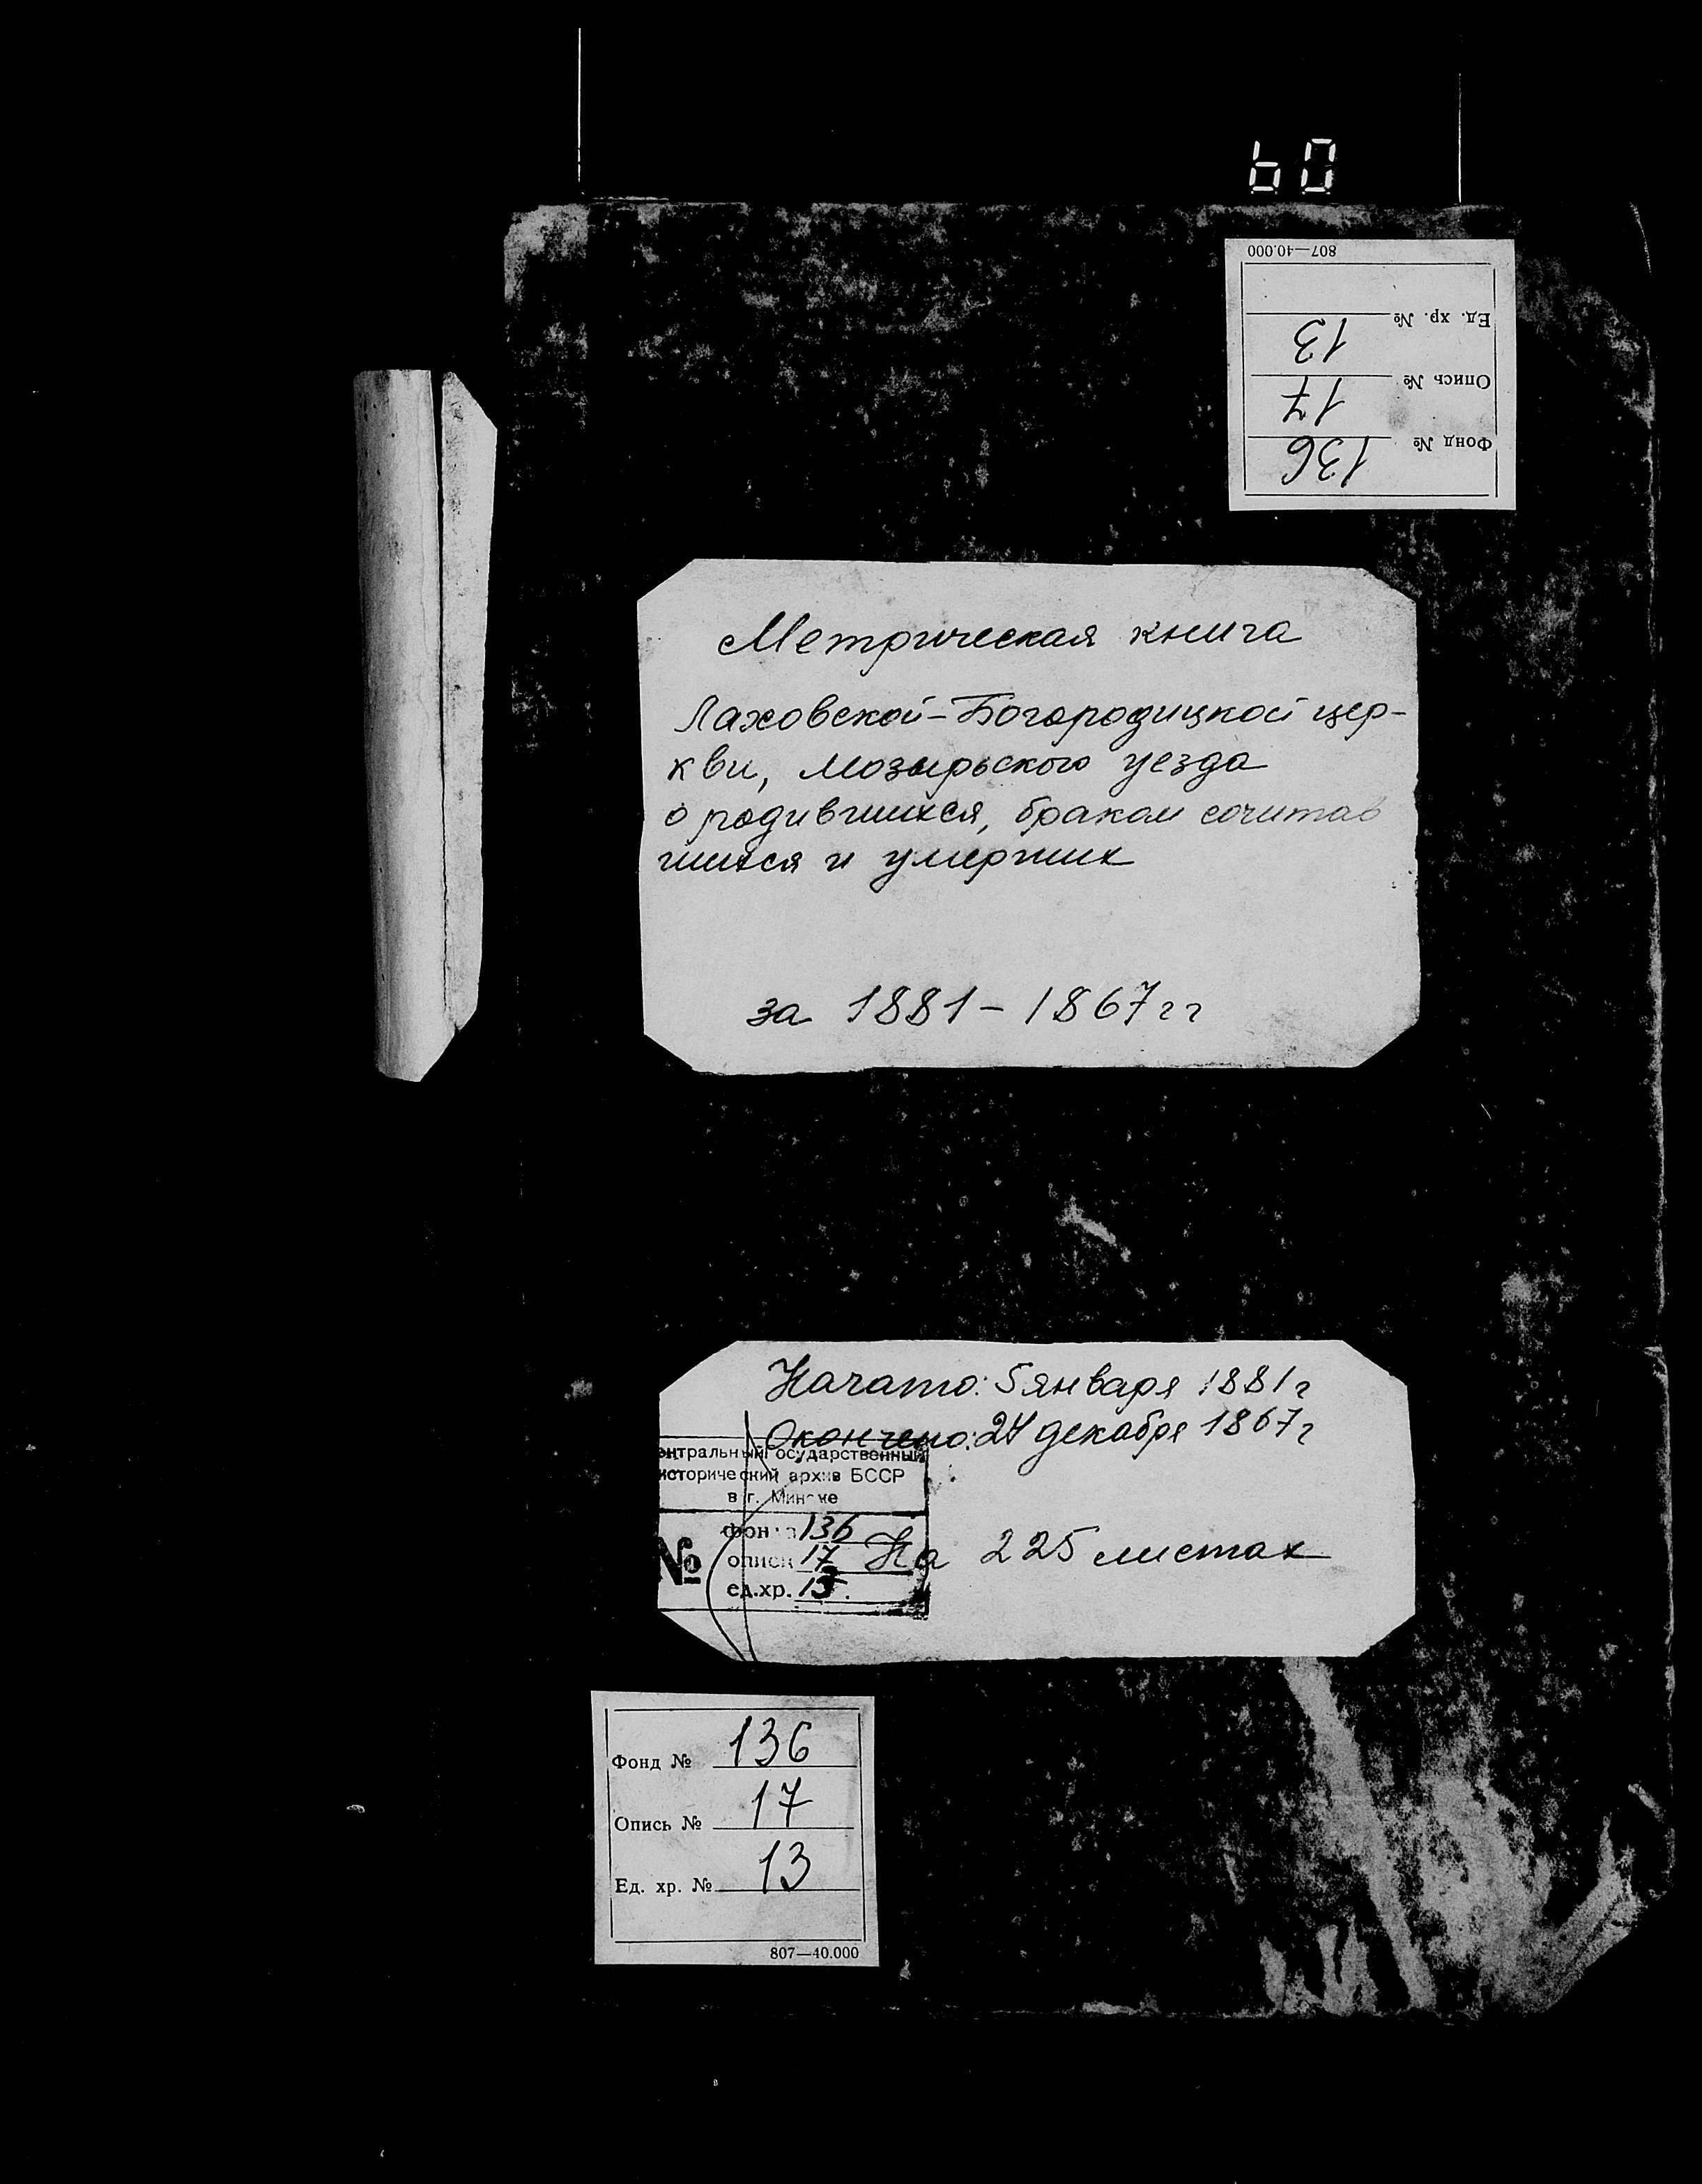 60
807—40.000
Ед. хр. № 13
Опись № 17
Фонд № 136
Метрическая книга
Лаховской-Богородицкой цер-
кви, Мозырьского уезда
о родившихся, браком сочитав
шихся и умерших
за 1881-1867гг
Начато: 5 января 1881г
Окончено: 24 декабря 1867г
ентральный государственный
исторический архив БССР
в г. Минске
фонд 136
На 225 листах
№ описи 17
ед.хр. 13.
Фонд № 136
Опись № 17
Ед. хр. № 13
807—40.000